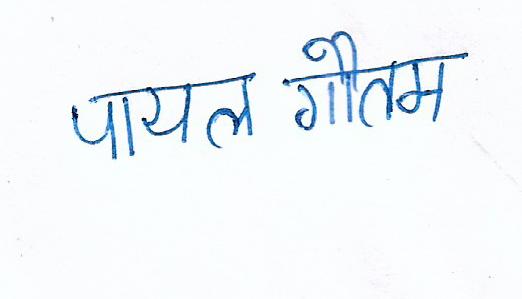 पायल गौतम